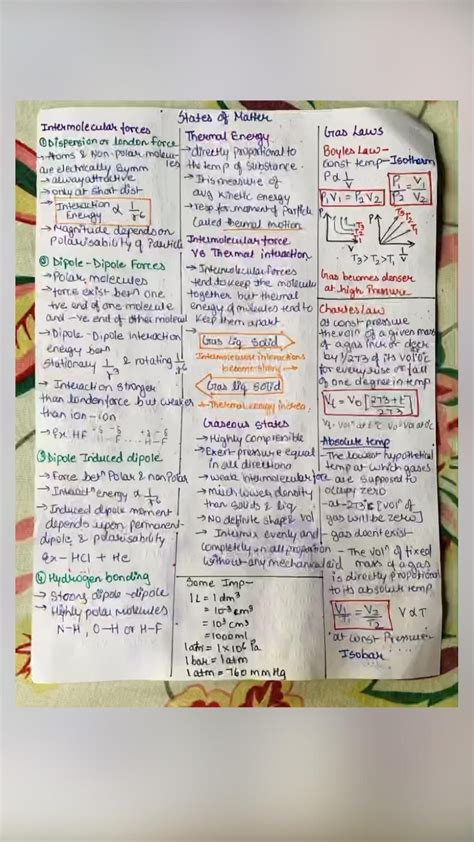 States of Matter
Intermolecular forces
① Dispersion or london Force
→ Atoms & Non-polar molecu-
les
are electrically symm
→ always attractive
→ only at short dist
→ Interaction ∝ 1/r6
Energy
→ Magnitude depends on
Polarisability of Particle
② Dipole-Dipole Forces
→ Polar molecules
→ force exist betn one
+ve end of one molecule
and -ve end of other molecul
→ Dipole-Dipole interaction
energy betn
stationary 1/r3 & rotating 1/r6
→ Interaction stronger
than london force but weaker
than ion-ion
→ Ex-HF H-F ... H-F
③ Dipole Induced dipole
→ Force betn Polar & nonPolar
→ Interactn energy ∝ 1/r6
→ Induced dipole moment
depends upon permanent-
dipole & polarisability
Ex- HCl + He
④ Hydrogen bonding
→ Strong dipole-dipole
→ Highly polar molecules
N-H, O-H or H-F
Thermal Energy
→ directly proportional to
the temp of substance.
→ Its measure of
avg kinetic energy
→ resp. for moment of particle
Called thermal motion
Intermolecular force
Vs Thermal interaction
→ Intermolecular forces
tend to keep the molecule
together but thermal
energy of molecules tend to
keep them apart
→ Gas liq solid
Intermolecular interactions
become strong →
Gas liq solid
← Thermal energy increa,
Gaseous states
→ Highly compressible
→ Exert pressure equal
in all directions
→ weak intermolecular force
→ much lower density
than solids & liq
→ No definite shape & vol
→ Intermix evenly and
completely in all proportion
without any mechanical aid
Some Imp-
1L = 1 dm3
= 10-3 cm3
= 103 cm3
= 1000ml
1 atm = 1×106 Pa
1 bar = 1atm
1 atm = 760 mm Hg
Gas Laws
Boyles Law -
const temp - Isotherm
P ∝ 1/V
P1/P2 = V1/V2
P1V1 = P2V2
P T3 T2 T1 V
P T3 T2 T1 1/V
T3 > T2 > T1
Gas becomes denser
at high Pressure
Charles law
at const pressure
the voln of a given mass
of a gas incr or decr
by 1/273 of its voln 0°C
for every rise or fall
of one degree in temp
Vt = V0 [273+t/273]
Vt - voln at t°C V0 = vol at 0°C
Absolute temp
- The lowest hypothetical
temp at which gases
are supposed to
occupy zero
- at -273°C [voln of
gas will be zero]
- gas doesn't exist
- The voln of fixed
mass of a gas
is directly proportional
to its absolute temp
V1/T1 = V2/T2 V ∝ T
at const Pressure
Isobar